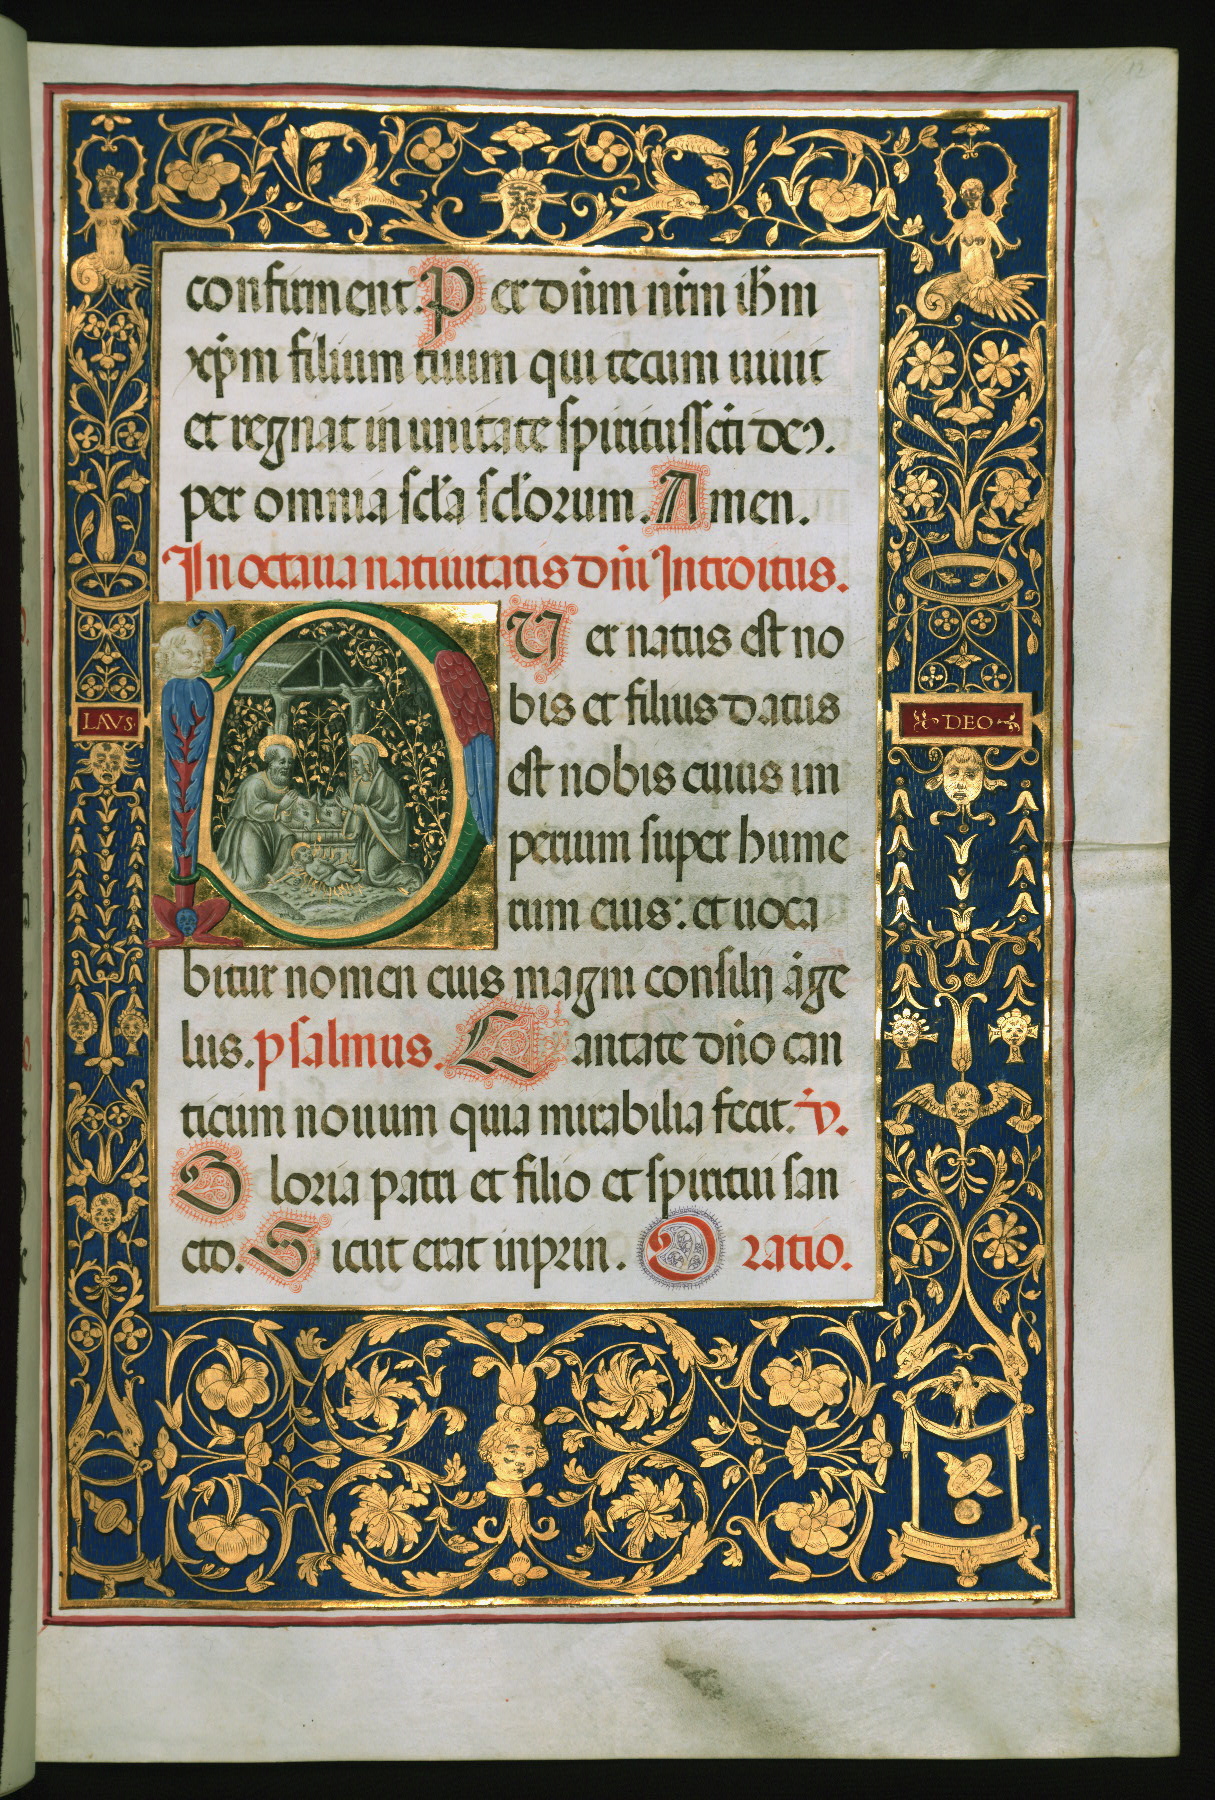 12
confirment. Per dñm nr̃m ih̃m
xp̃m filium tuum qui tecum uiuit
et regnat in unitate spiritussc̃ti deꝰ.
per omnia scl̃a scl̃orum. Amen.
In octaua natiuitatis dñi Introitus.
PUer natus est no
bis et filius datus
est nobis cuius im
LAVS DEO
perium super hume
rum eius: et uoca
bitur nomen eius magni consilij ãge
lus. psalmus. Cantate dño can
ticum nouum quia mirabilia fecit. v̇.
Gloria patri et filio et spiritui san
cto. Sicut erat inprin. Oratio.